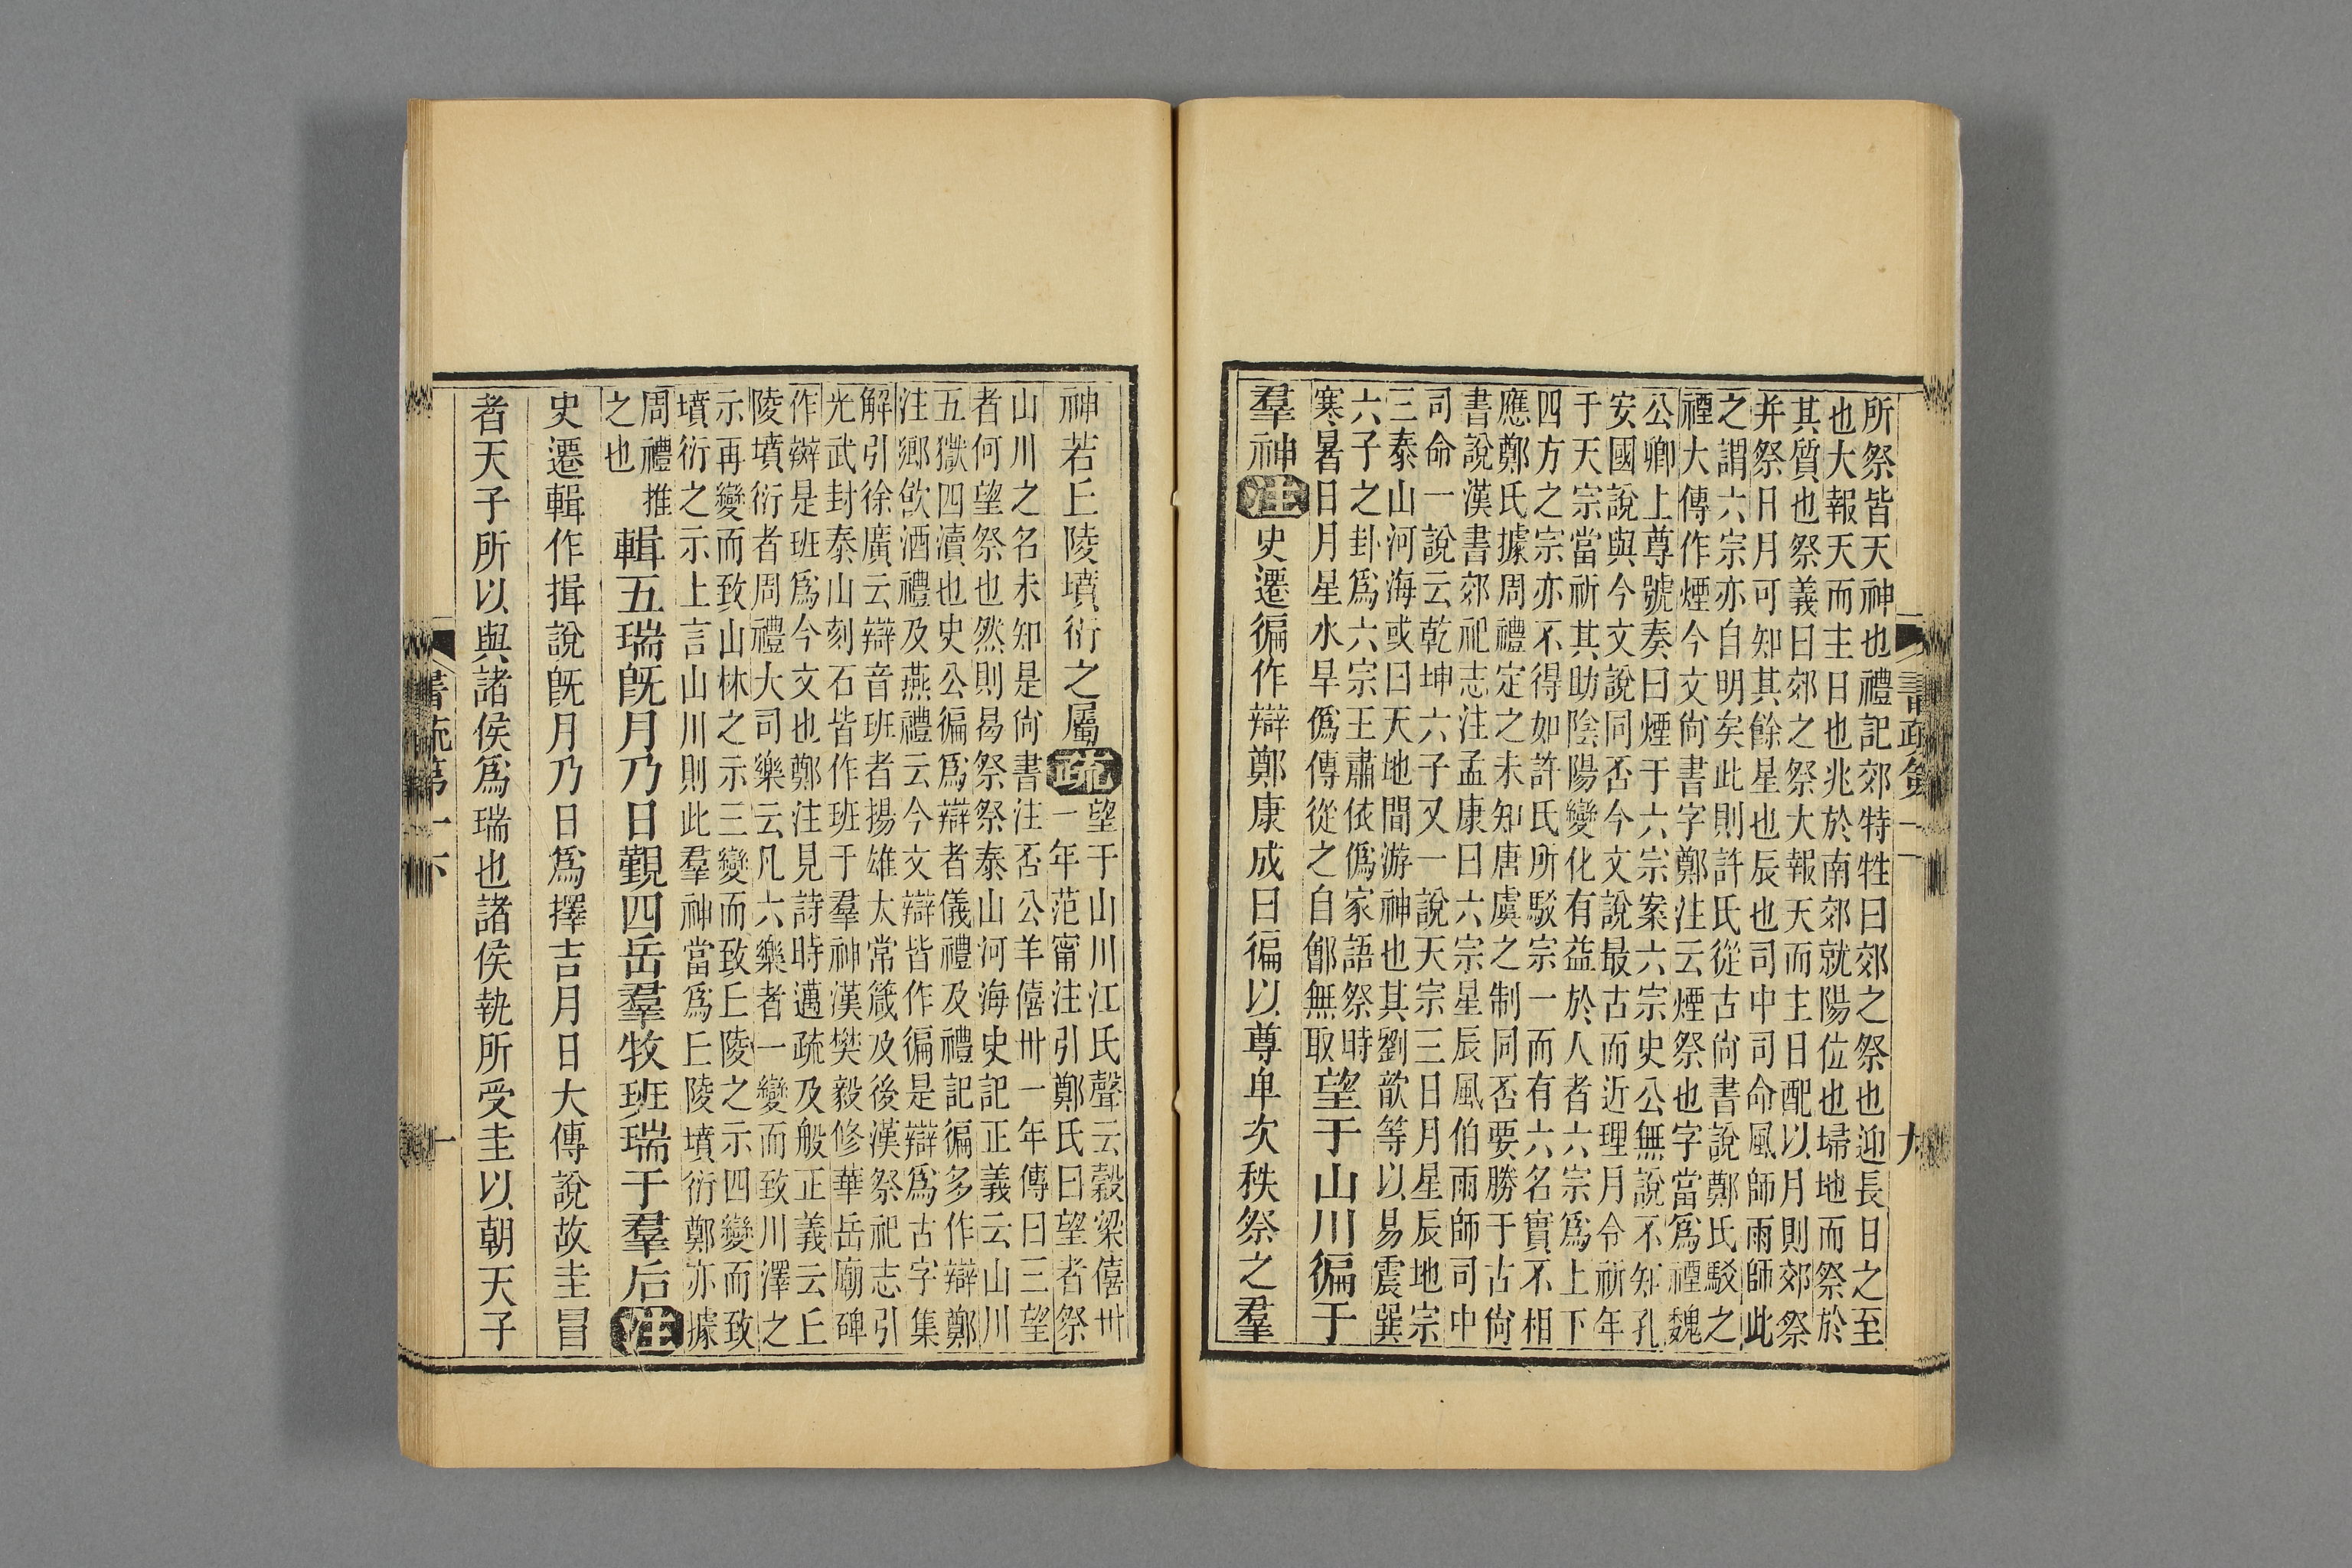 所祭皆天神也禮記郊特牲曰郊之祭也迎長日之至
也大報天而主日也兆於南郊就陽位也埽地而祭於
其質也祭義曰郊之祭大報天而主日配以月則郊祭
并祭日月可知其餘星也辰也司中司命風師雨師此
之謂六宗亦自明矣此則許氏從古尙書說鄭氏駁之
禋大傳作煙今文尙書字鄭注云煙祭也字當爲禋魏
公卿上尊號奏曰煙于六宗案六宗史公無說不知孔
安國說與今文說同否今文說最古而近理月令祈年
于天宗當祈其助陰陽變化有益於人者六宗爲上下
四方之宗亦不得如許氏所駁宗一而有六名實不相
應鄭氏據周禮定之未知唐虞之制同否要勝于古尙
書說漢書郊祀志注孟康曰六宗星辰風伯雨師司中
司命一說云乾坤六子又一說天宗三日月星辰地宗
三泰山河海或曰天地閒游神也其劉歆等以易震巽
六子之卦爲六宗王肅依僞家語祭時
寒暑日月星水旱僞傳從之自鄶無取
望于山川徧于
羣神注史遷徧作辯鄭康成曰徧以尊卑次秩祭之羣
書疏第一
九
神若丘陵墳衍之屬疏
望于山川江氏聲云穀梁僖卅
一年范甯注引鄭氏曰望者祭
山川之名未知是尙書注否公羊僖卅一年傳曰三望
者何望祭也然則曷祭祭泰山河海史記正義云山川
五獄四瀆也史公徧爲辯者儀禮及禮記徧多作辯鄭
注鄉飮酒禮及燕禮云今文辯皆作徧是辯爲古字集
解引徐廣云辯音班者揚雄太常箴及後漢祭祀志引
光武封泰山刻石皆作班于羣神漢樊毅修華岳廟碑
作辬是班爲今文也鄭注見詩時邁疏及般正義云丘
陵墳衍者周禮大司樂云凡六樂者一變而致川澤之
示再變而致山林之示三變而致丘陵之示四變而致
墳衍之示上言山川則此羣神當爲丘陵墳衍鄭亦據
周禮推
之也
輯五瑞旣月乃日覲四岳羣牧班瑞于羣后注
史遷輯作揖說旣月乃日爲擇吉月日大傳說故圭冒
者天子所以與諸侯爲瑞也諸侯執所受圭以朝天子
書疏第一下